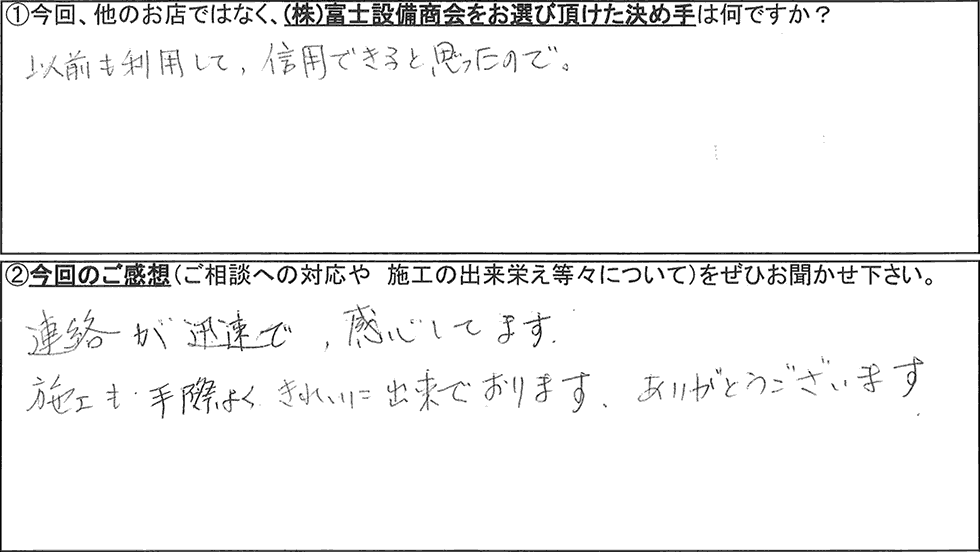 ①今回、他のお店ではなく、(株)富士設備商会をお選び頂けた決め手は何ですか？
以前も利用して、信用できると思ったので。
②今回のご感想(ご相談への対応や 施工の出来栄え等々について)をぜひお聞かせ下さい。
連絡が迅速で、感心してます.
施工も手際よくきれいに出来ております. ありがとうございます.